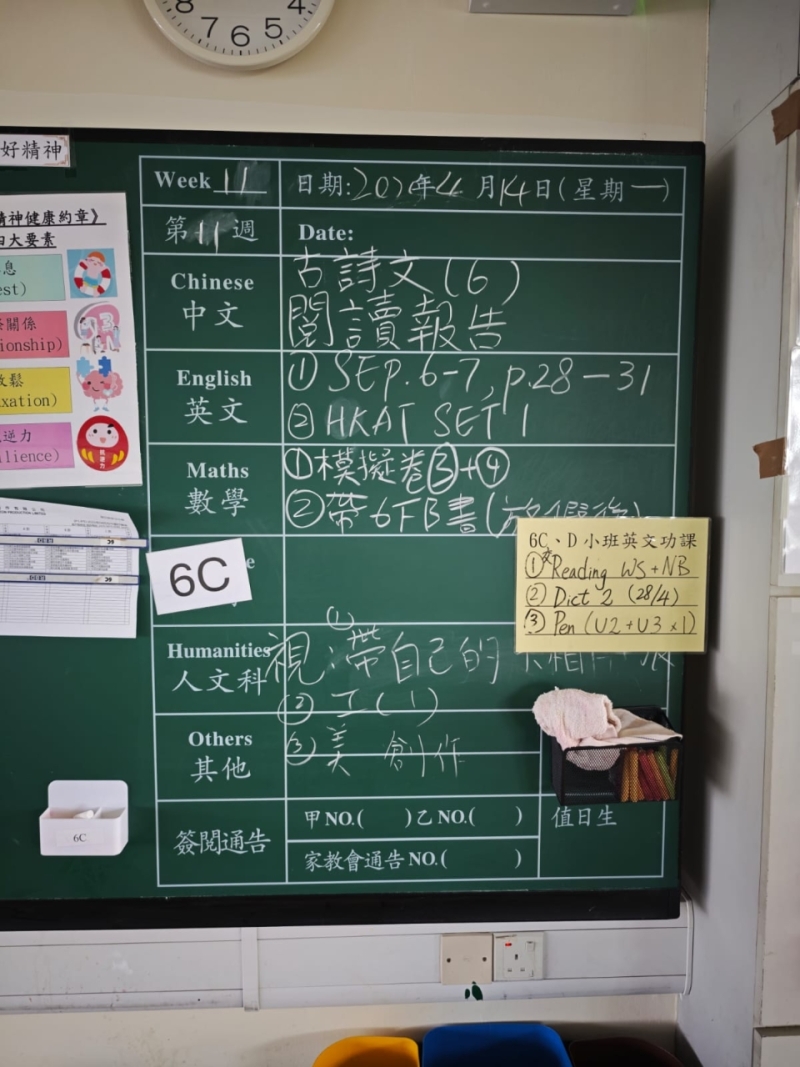 8 7 6 5 4
好精神
精神健康約章》
四大要素
息
est)
關係
ionship)
放鬆
axation)
逆力
ilience)
Week 11
日期: 年4月14日(星期一)
第11週
Date:
Chinese
中文
古詩文(6)
閱讀報告
English
英文
① SEP.6-7, p.28-31
② HKAT SET 1
Maths
數學
①模擬卷③+④
②帶6FB書(放假後)
6C
6C、D小班英文功課
① Reading WS + NB
② Dict 2 (28/4)
③ Pen (U2+U3 x1)
Humanities
人文科
①
視:帶自己的
② 工(1)
Others
其他
③美 創作
6C
簽閱通告
甲NO.( )乙NO.( )
家教會通告NO.( )
值日生